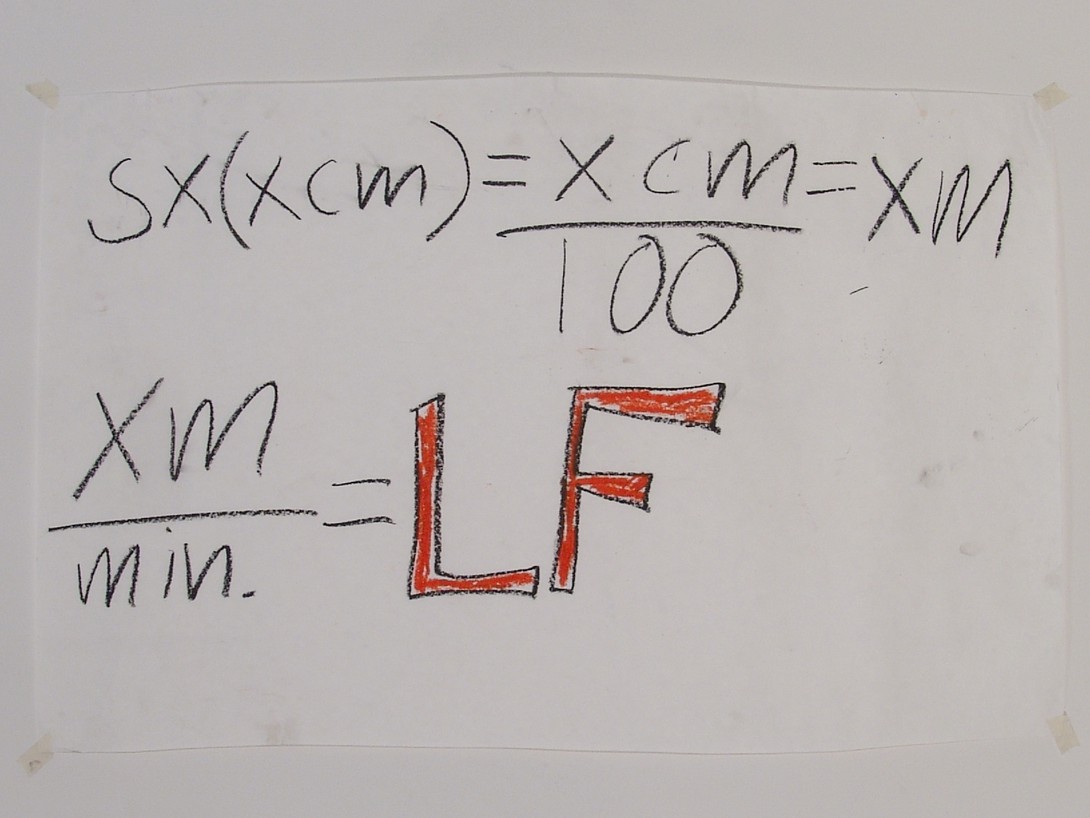 Sx(xcm)=xcm=xm
100
xm
min.
=LF